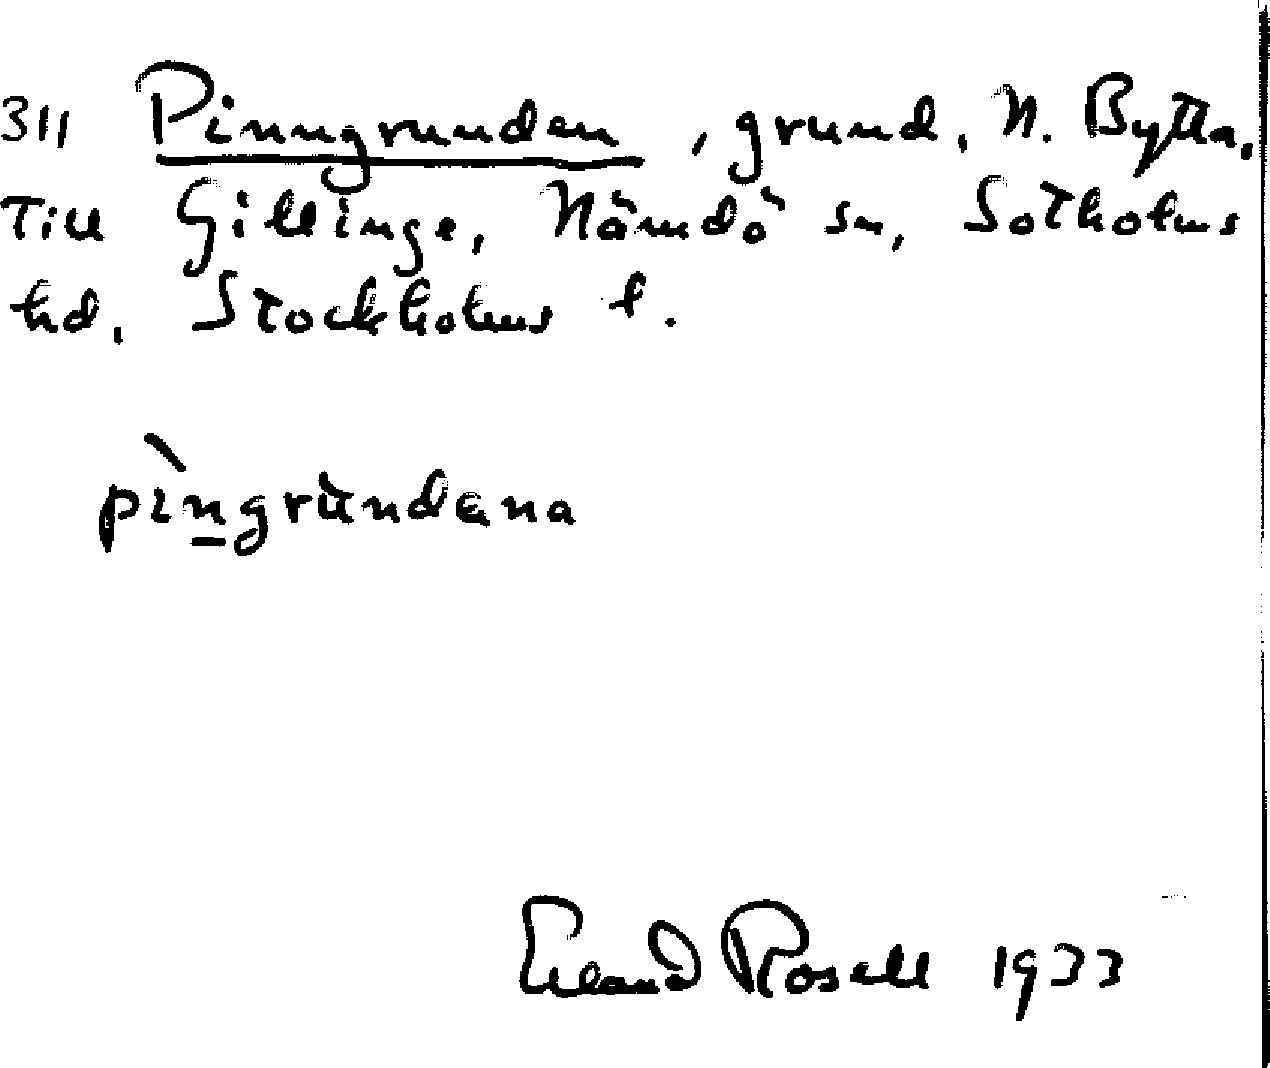 311 Pinngrunden, grund, N. Bytta.
Till Gillinge, Nämdö sn, Sotholms
hd, Stockholms l.
pìngrùndæna
Erland Rosell 1933